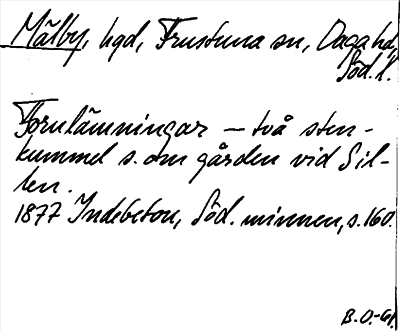 Mälby, hgd, Frustuna sn, Daga hd,
Söd. l.
Fornlämningar – två sten-
kummel s. om gården vid Sil-
len.
1877 Indebetou, Söd. minnen, s. 160.
B. O. -61.